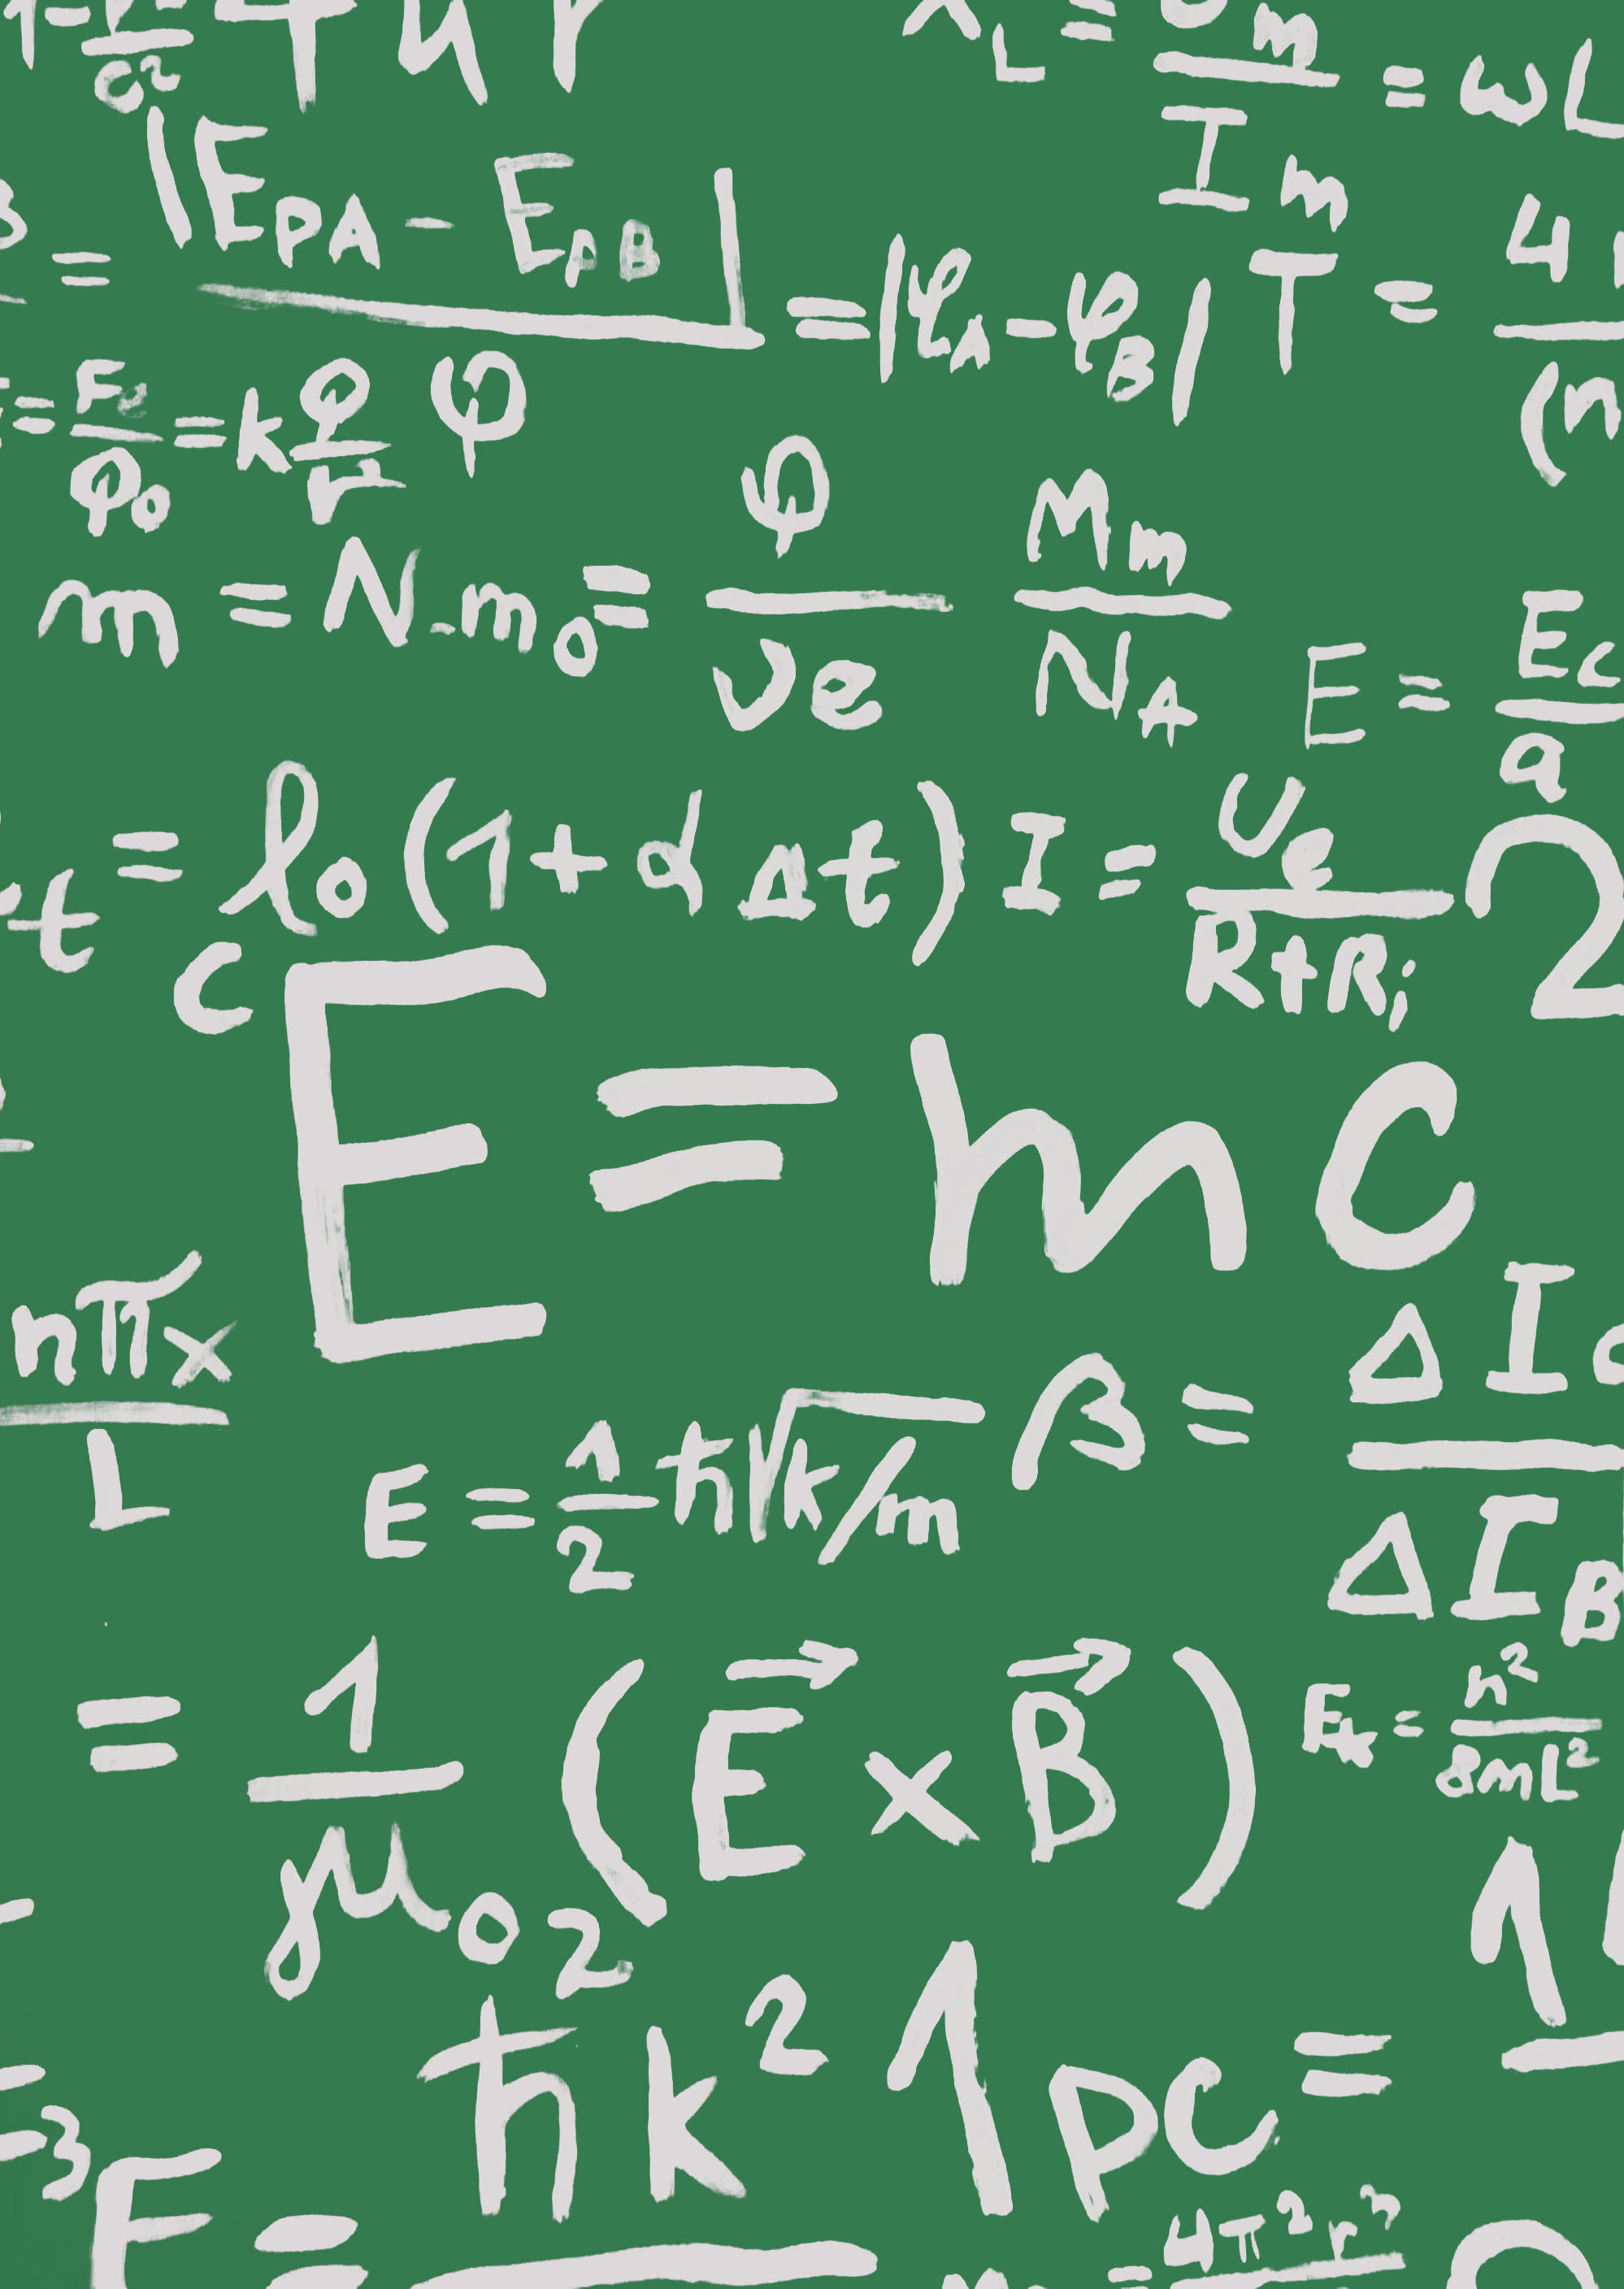 c²
X_L = U_m/I_m = ωL
= |E_PA - E_pB| = |φ_A - φ_B|
T = 4
(n
= F_e/φ_0 = k Q/r φ
m = N · m_0 = Q/νe M_m/N_A
E = E_c/a
t = l_0 (1 + α Δt)
I = U_e/(R + R_i)
2
C
E = mc
nπx/L
E = 1/2 ħ √k/m
β = ΔI_c/ΔI_B
= 1/μ_0 (E⃗ × B⃗)
E_k = h²/8mL²
2
ħk²
1pc = 1
3
E =
= 4π²r³